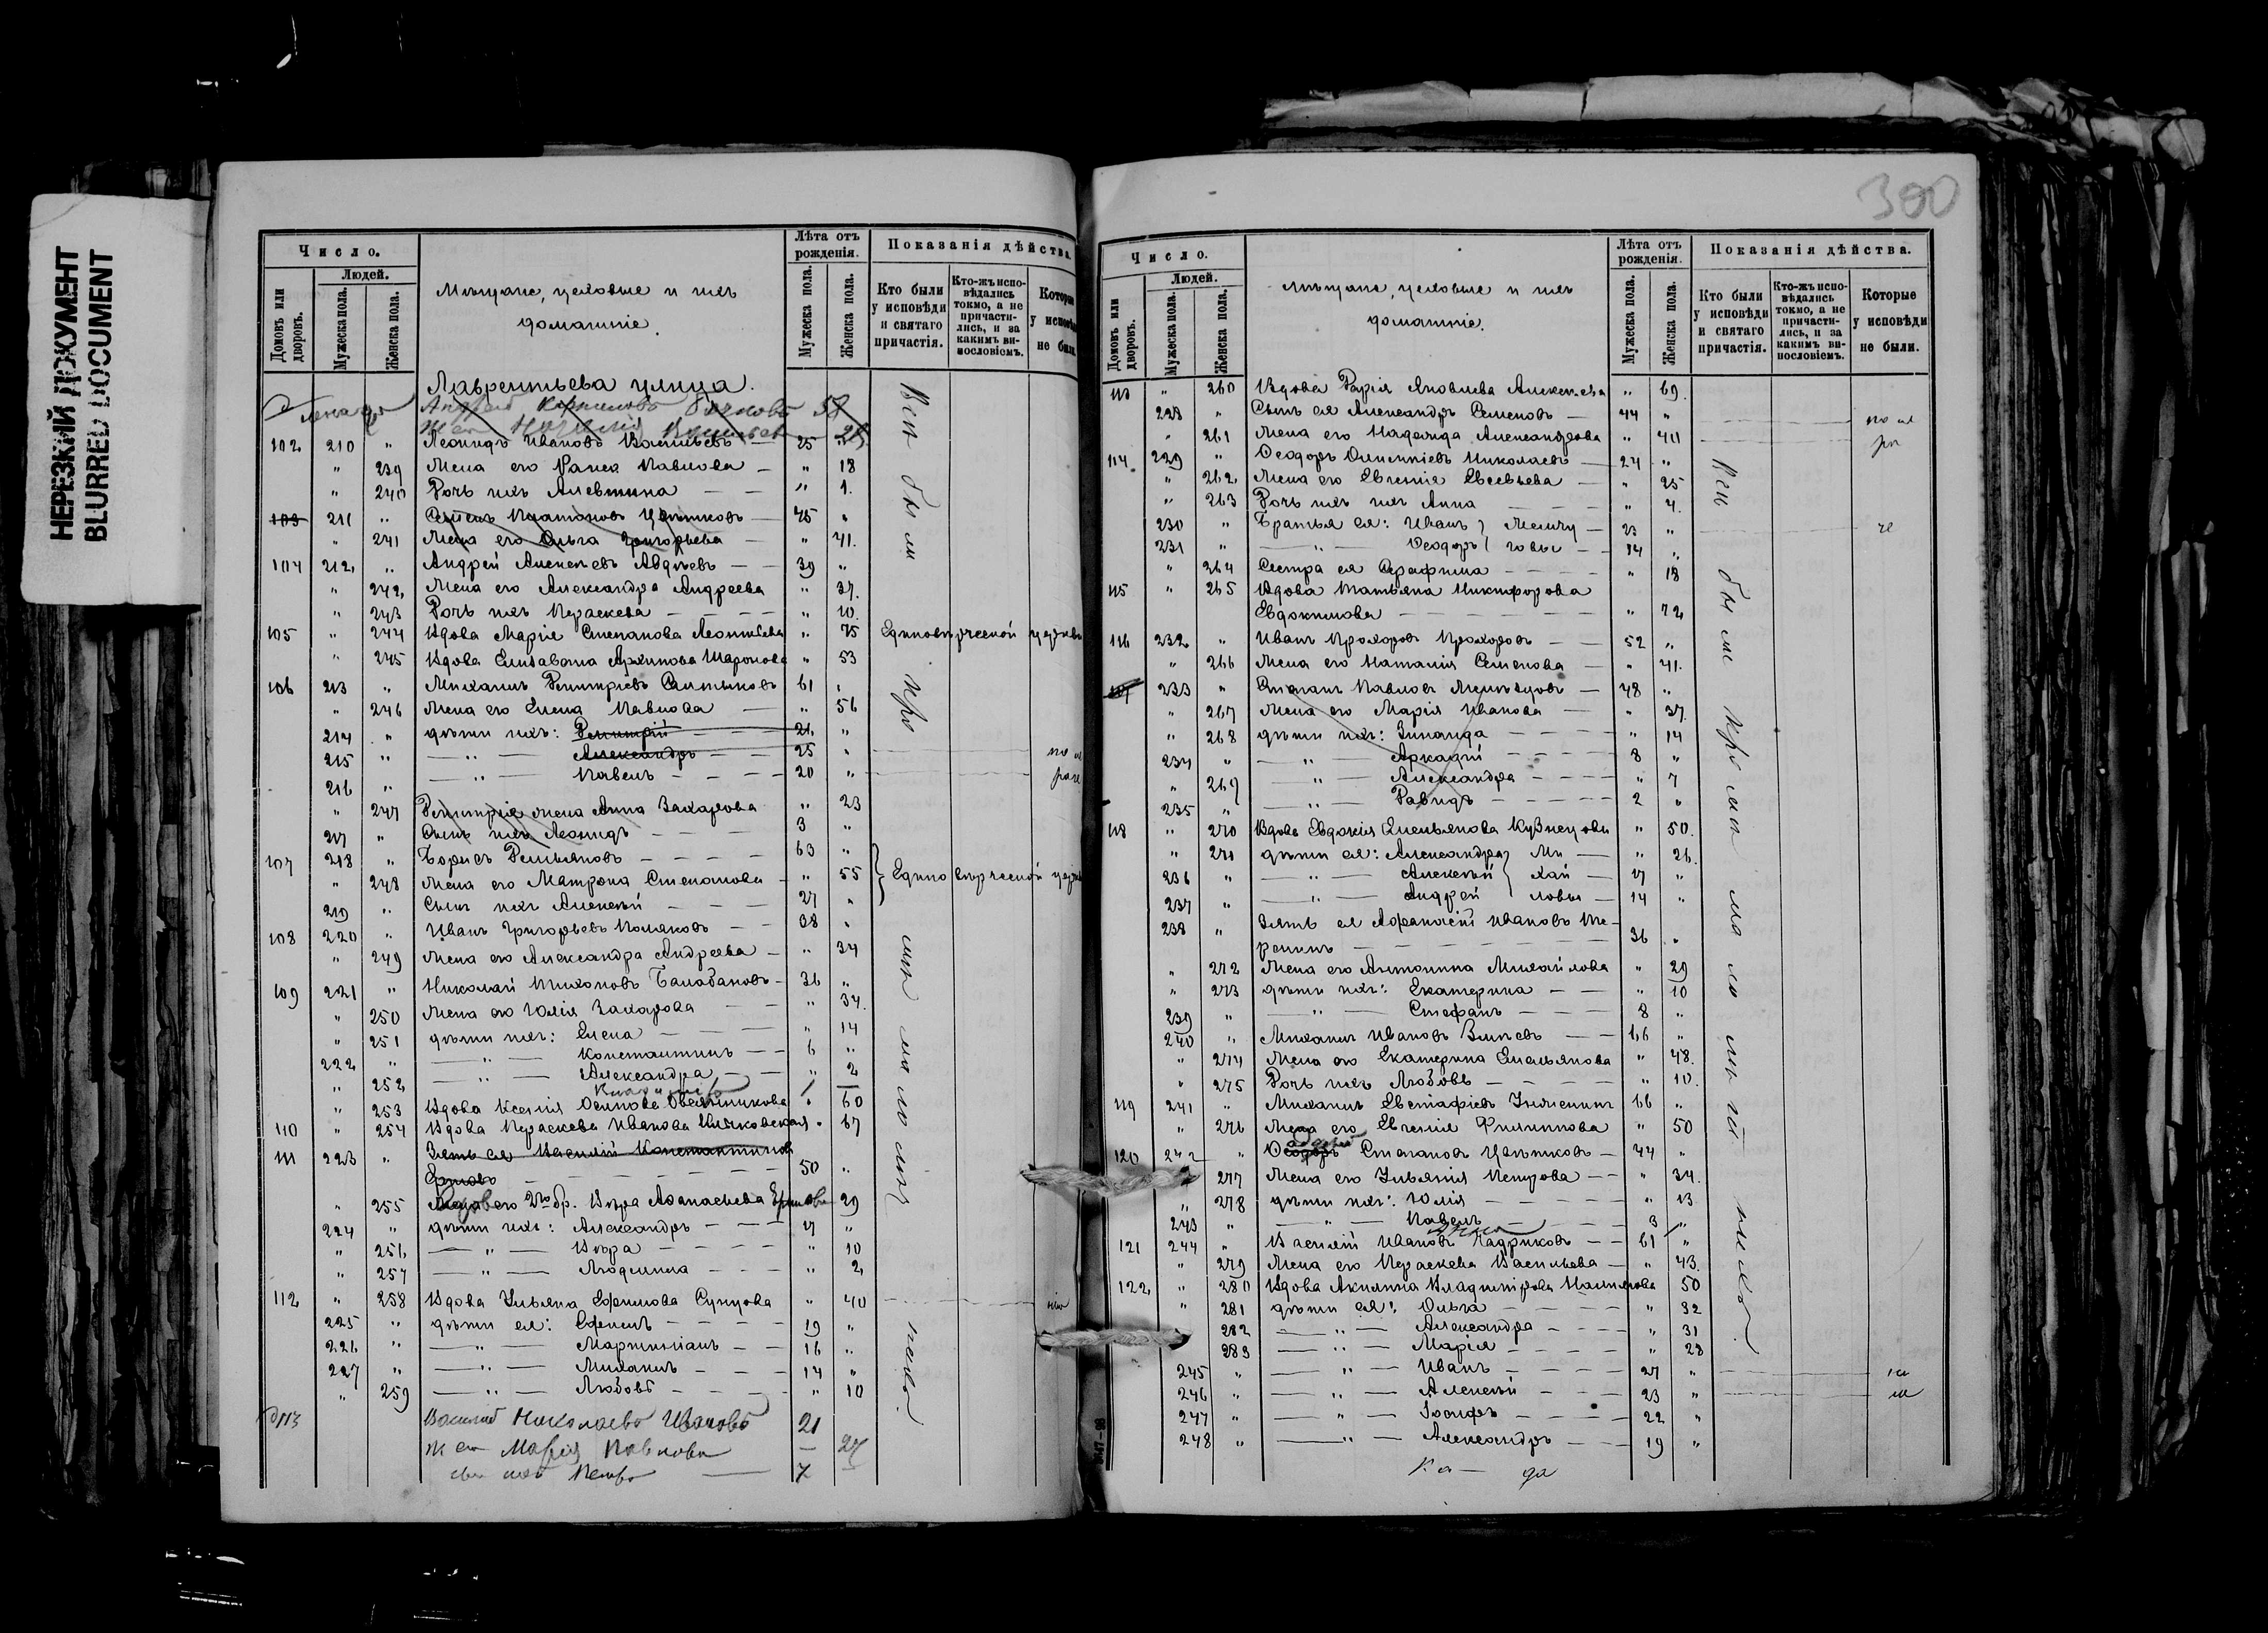 НЕРЕЗКИЙ ДОКУМЕНТ
BLURRED DOCUMENT
Число.
Людей.
Домовъ или дворовъ.
Мужеска пола.
Женска пола.
Мѣщане, цеховые и ихъ
домашніе.
Лѣта отъ рожденія.
Мужеска пола.
Женска пола.
Показанія дѣйства.
Кто были у исповѣди и святаго причастія.
Кто-жъ испо-вѣдались токмо, а не причасти-лись, и за какимъ ви-нословіемъ.
Которые у исповѣди не были.
Лаврентьева улица.
Андрей 58
102 210 " Леонидъ Ивановъ Васильевъ — 25 "
" 239 Жена его Раиса Павлова — " 18
" 240 Дочь ихъ Алевтина — — " 1.
103 211 " Семенъ Платоновъ Цвѣтковъ — 45 "
" 241 Жена его Ольга Григорьева — " 41.
104 212 " Андрей Алексѣевъ Авдѣевъ — — 39 "
" 242 Жена его Александра Андреева " 37.
" 243 Дочь ихъ Параскева — — — " 10.
105 " 244 Вдова Марія Степанова Леонтьева " 75 Единовѣрческой церкви
" 245 Вдова Елизавета Архипова Шаронова " 53
106 213 " Михаилъ Димитріевъ Салтыковъ 61 "
" 246 Жена его Елена Павлова — " 56
214 " дѣти ихъ: Димитрій — — — 26 "
215 " — " — Александръ — — 25 "
216 " — " — Павелъ — — — — 20 "
" 247 Димитрія жена Анна Захарова " 23
217 " Сынъ ихъ Леонидъ — — — 3 "
107 218 " Борисъ Демьяновъ — — — — 63 "
" 248 Жена его Матрона Степанова — " 55 Единовѣрческой церкви
219 " Сынъ ихъ Алексѣй — — — 27 "
108 220 " Иванъ Григорьевъ Поляковъ — — 38 "
" 249 Жена его Александра Андреева — " 34
109 221 " Николай Тихоновъ Балабановъ — 36 "
" 250 Жена его Юлія Захарова — — " 34.
" 251 дѣти ихъ: Елена — — — " 14
222 " — " — Константинъ — — 6 "
" 252 — " — Александра — — " 2
Владиміръ 1 —
" 253 Вдова Ксенія Осипова Овсянникова " 60
110 " 254 Вдова Параскева Иванова " 67
111 223 " Зять ея Василій Константиновъ
Ершовъ — — — — — 50 "
" 255 Жена его 2го бр. Вѣра Афанасьева Ершова 29
224 " дѣти ихъ: Александръ — — — "
" 256 — " — Вѣра — — — — " 10
" 257 — " — Людмила — — — " 2
112 " 258 Вдова Ульяна Ефимова Сунцова " 40
225 " дѣти ея: Ефимъ — — — — 19 "
226 " — " — Мартиніанъ — — 16 "
227 " — " — Михаилъ — — — 14 "
" 259 — " — Любовь — — — — " 10
113 Василій Николаевъ Ивановъ 21
Ж его Марія Павлова — 27
сын ихъ Петръ — 7
Всѣ были при
300
Число.
Людей.
Домовъ или дворовъ.
Мужеска пола.
Женска пола.
Мѣщане, цеховые и ихъ
домашніе.
Лѣта отъ рожденія.
Мужеска пола.
Женска пола.
Показанія дѣйства.
Кто были у исповѣди и святаго причастія.
Кто-жъ испо-вѣдались токмо, а не причасти-лись, и за какимъ ви-нословіемъ.
Которые у исповѣди не были.
113 " 260 Вдова Дарія Яковлева Алексѣева " 69.
228 " Сынъ ея Александръ Семеновъ — 44 "
" 261 Жена его Надежда Александрова " 40
114 229 " Ѳеодоръ Олимпіевъ Николаевъ — 24 "
" 262 Жена его Евгенія Евсевьева — " 25
" 263 Дочь ихъ Анна — — — — " 4.
230 " Братья ея: Иванъ — 23 "
231 " — " — Ѳеодоръ — — 14 "
" 264 Сестра ея Серафима — — — — " 18
115 " 265 Вдова Татьяна Никифорова
Евдокимова — — — — — " 72
116 232 " Иванъ Прохоровъ Прохоровъ — — 52 "
" 266 Жена его Наталія Семенова — — " 41.
117 233 " Степанъ Павловъ — 48 "
" 267 Жена его Марія Иванова — — " 37.
" 268 дѣти ихъ: Зинаида — — — — " 14
234 " — " — Аркадій — — — — 8 "
" 269 — " — Александра — — — — " 7
235 " — " — Давидъ — — — — — 2 "
118 " 270 Вдова Евдокія Емельянова Кузнецова " 50.
" 271 дѣти ея: Александра Ми — " 26.
236 " — " — Алексѣй хай — 17 "
237 " — " — Андрей ловы — 14 "
238 " Зять ея Афанасій Ивановъ Те-
репинъ — — — — — — 36 "
" 272 Жена его Антонина Михайлова " 29
" 273 дѣти ихъ: Екатерина — — " 10
239 " — " — Стефанъ — — — 8 "
240 " Михаилъ Ивановъ — — 66 "
" 274 Жена его Екатерина Емельянова " 48.
" 275 Дочь ихъ Любовь — — — — " 10.
119 241 " Михаилъ Евстафіевъ 66 "
" 276 Жена его Евгенія Филиппова " 50
120 242 " Ѳеодоръ Степановъ Цвѣтковъ — 44 "
" 277 Жена его Ульянія Петрова — — " 34.
" 278 дѣти ихъ: Юлія — — — — " 13
243 " — " — Павелъ — — — — 3 "
121 244 " Василій Ивановъ Кадриковъ — — 61 "
" 279 Жена его Параскева Васильева — " 43.
122 " 280 Вдова Акилина Владимірова 50
" 281 дѣти ея: Ольга — — — — " 32
" 282 — " — Александра — — — " 31
283 — " — Марія — — — — " 28
245 " — " — Иванъ — — — — 27 "
246 " — " — Алексѣй — — — — 23 "
247 " — " — Іосифъ — — — — 22 "
248 " — " — Александръ — — — 19 "
Всѣ были при